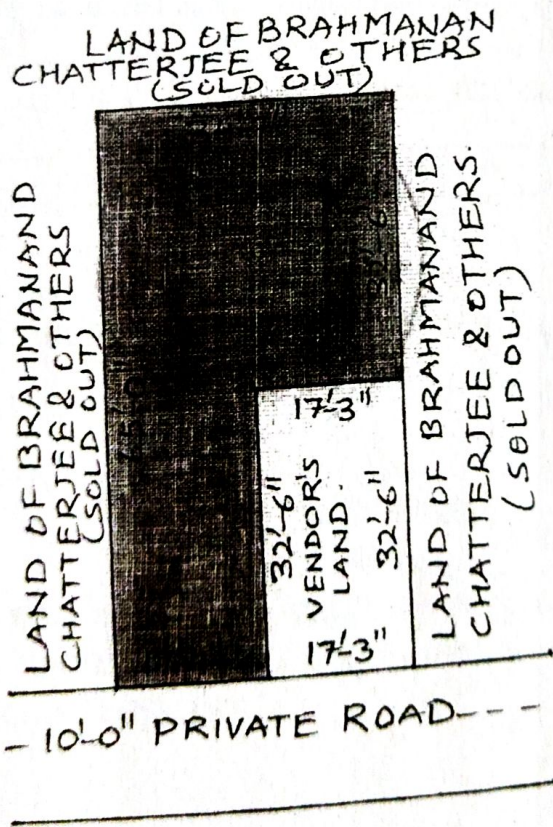 LAND OF BRAHMANAN
CHATTERJEE & OTHERS
(SOLD OUT)
LAND OF BRAHMANAND
CHATTERJEE & OTHERS
(SOLD OUT)
17'-3"
32'-6"
VENDOR'S
LAND.
32'-6"
17'-3"
LAND OF BRAHMANAND
CHATTERJEE & OTHERS.
(SOLD OUT)
- 10'-0" PRIVATE ROAD- - -